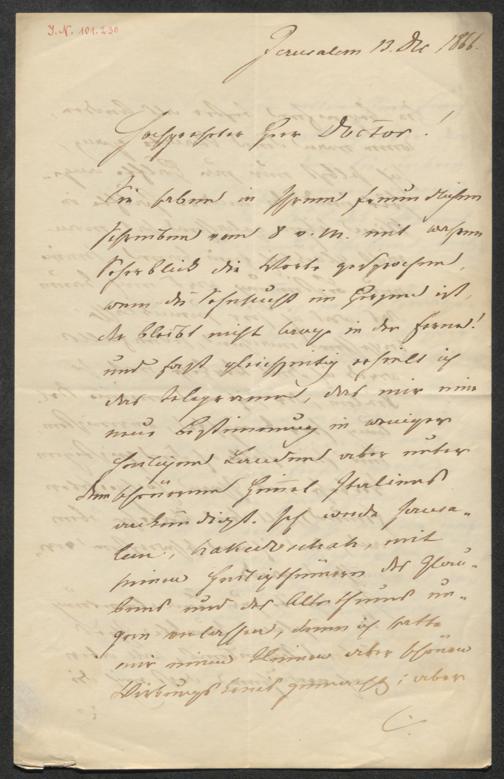 J.N. 101.230
Jerusalem 13. Dec 1866.
Hochgeehrter Herr Doctor!
Sie haben in Ihrem freundlichen
Schreiben vom 8 v. M. mit wahrem
Seherblick die Worte gesprochen,
wem die Sehnsucht im Herzen ist,
der bleibt nicht lange in der Ferne!
und fast gleichzeitig erhielt ich
das Telegramm, das mir eine
neue Bestimmung in weniger
heiligem Lande aber unter
dem schönen Himmel Italiens
ankündigt. Ich werde Jerusa-
lem, mit
seinen Heiligthümern des Glau-
bens und des Alterthums un-
gern verlassen, denn ich hatte
mir einen kleinen aber schönen
Wirkungskreis gemacht; aber